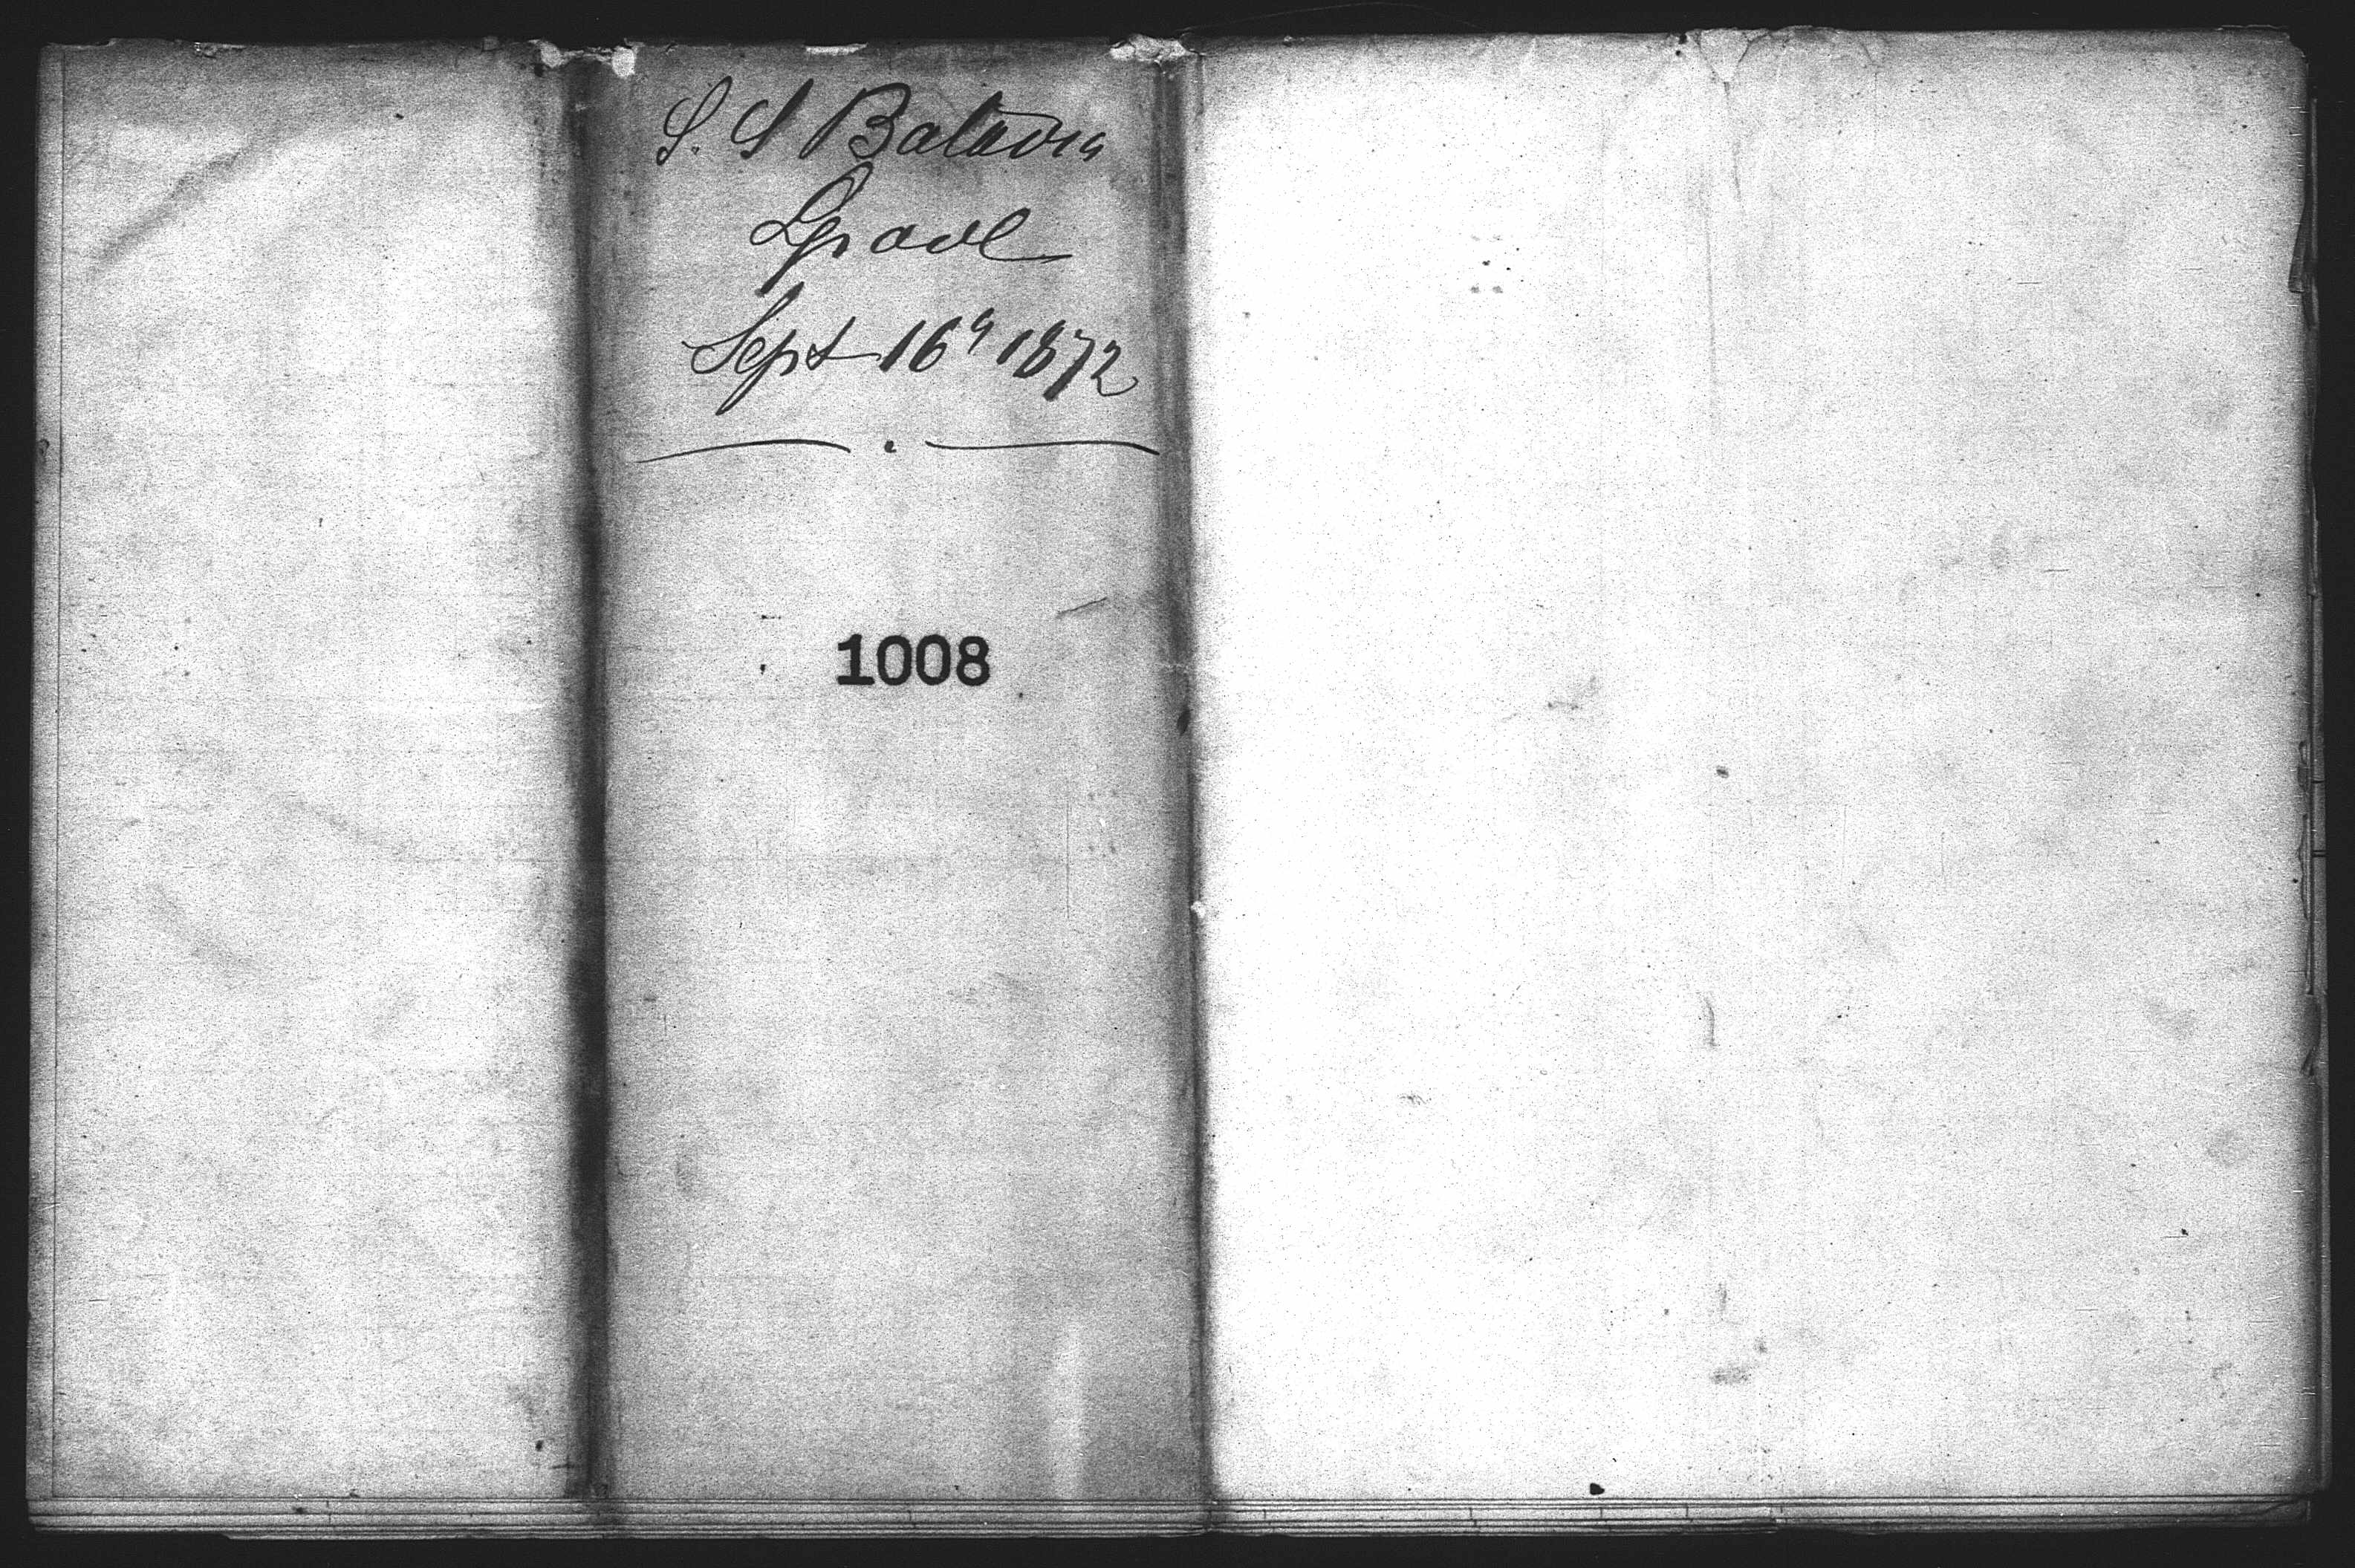 S. S Batavia
Lpool
Sept 16" 1872
1008